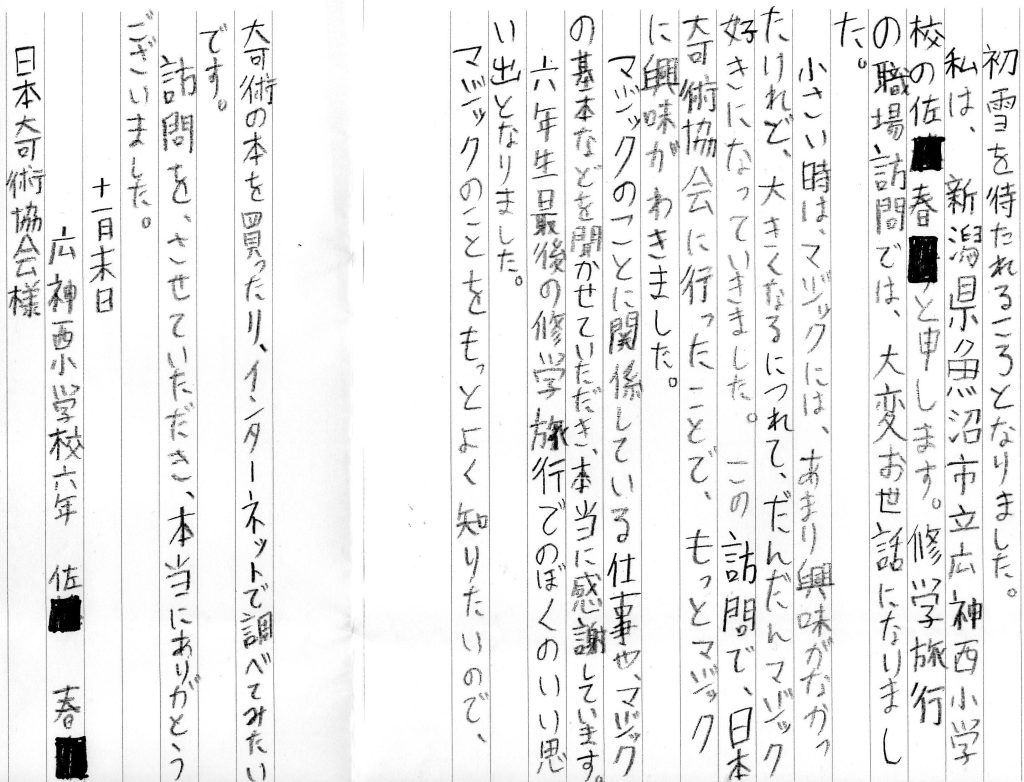 初雪を待たれるころとなりました。
私は、新潟県魚沼市立広神西小学
校の佐 春 と申します。修学旅行
の職場訪問では、大変お世話になりまし
た。
小さい時は、マジックには、あまり興味がなかっ
たけれど、大きくなるにつれて、だんだんマジック
好きになっていきました。この訪問で、日本
奇術協会に行ったことで、もっとマジック
に興味がわきました。
マジックのことに関係している仕事や、マジック
の基本などを聞かせていただき、本当に感謝しています。
六年生最後の修学旅行でのぼくのいい思
い出となりました。
マジックのことをもっとよく知りたいので、
奇術の本を買ったり、インターネットで調べてみたい
です。
訪問を、させていただき、本当にありがとう
ございました。
十一月末日
広神西小学校六年 佐 春
日本奇術協会様